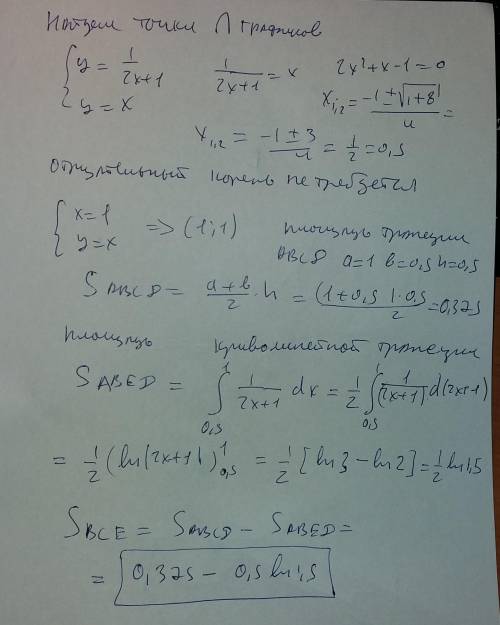 Найдем точки ∩ графиков
{ y = 1/(2x+1)   1/(2x+1) = x   2x²+x-1=0
{ y = x   x₁,₂ = (-1±√(1+8))/4 =
x₁,₂ = (-1±3)/4 = 1/2 = 0,5
Отрицательный корень не требуется
{ x=1
{ y=x => (1;1)   площадь трапеции
ABCD a=1 b=0,5 h=0,5
S ABCD = (a+b)/2 · h = (1+0,5)·0,5/2 = 0,375
площадь криволинейной трапеции
S ABED = ∫₀,₅¹ 1/(2x+1) dx = 1/2 ∫₀,₅¹ 1/(2x+1) d(2x+1)
= 1/2 (ln|2x+1|)₀,₅¹ = 1/2 [ln3 - ln2] = 1/2 ln1,5
S BCE = S ABCD - S ABED =
= 0,375 - 0,5 ln1,5